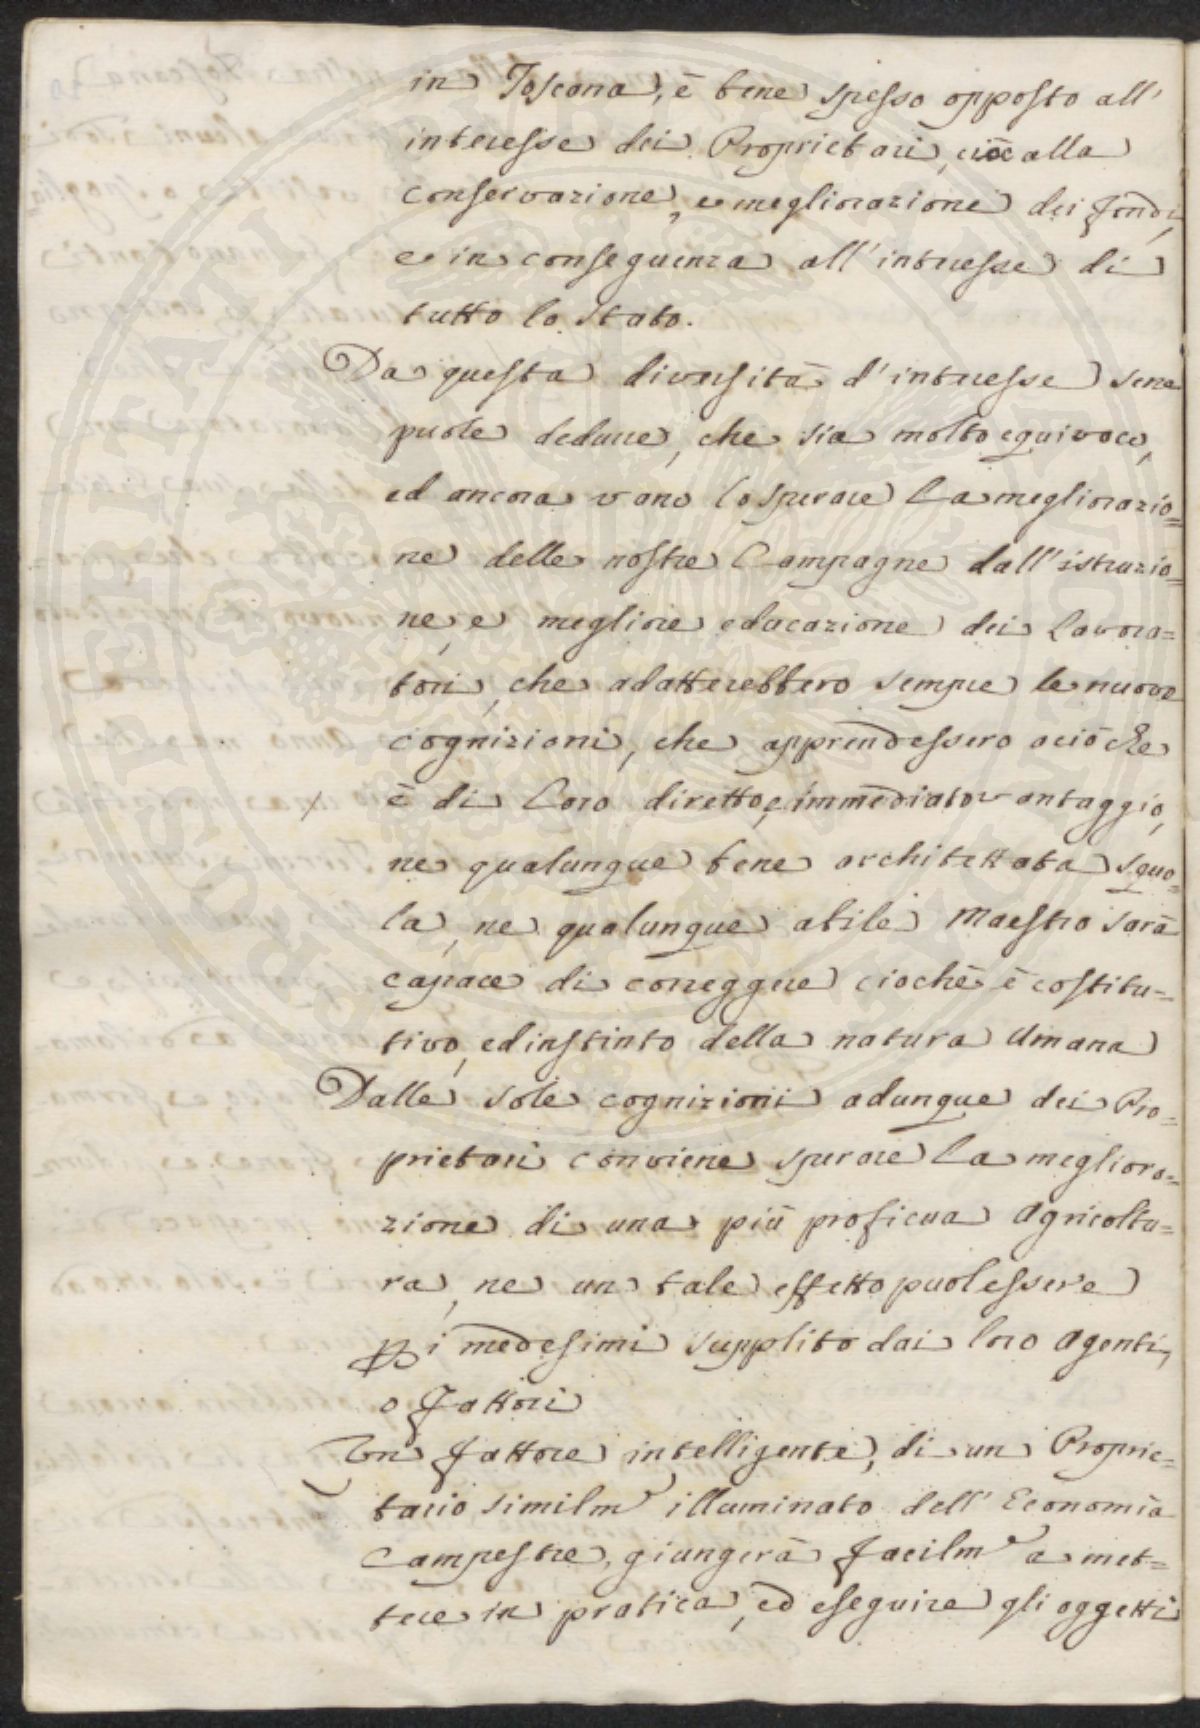 in Toscana, è bene spesso opposto all'
interesse dei Proprietari, cioè alla
conservazione, e megliorazione dei fondi,
e in conseguenza all'interesse di
tutto lo Stato.
Da questa diversità d'interesse sene
puole dedurre, che sia molto equivoco,
ed ancora vano lo sperare la megliorazio=
ne delle nostre Campagne dall'istruzio=
ne, e megliore educazione dei Lavora=
tori, che adatterebbero sempre le nuove
cognizioni, che apprendessero aciò che
è di loro diretto, e immediato vantaggio,
ne qualunque bene architettata squo=
la, ne qualunque abile Maestro sarà
capace di correggere ciochè è costitu=
tivo, ed instinto della natura Umana
Dalle sole cognizioni adunque dei Pro=
prietari conviene sperare la megliora=
zione di una più proficua Agricoltu=
ra, ne un tale effetto puol essere
p i medesimi supplito dai loro Agenti,
o Fattori
Un Fattore intelligente, di un Proprie=
tario similm.e illuminato dell'Economia
Campestre, giungerà facilm.e a met=
tere in pratica, ed eseguire gli oggetti
PROSPERITATI PUBLICAE AUGENDAE